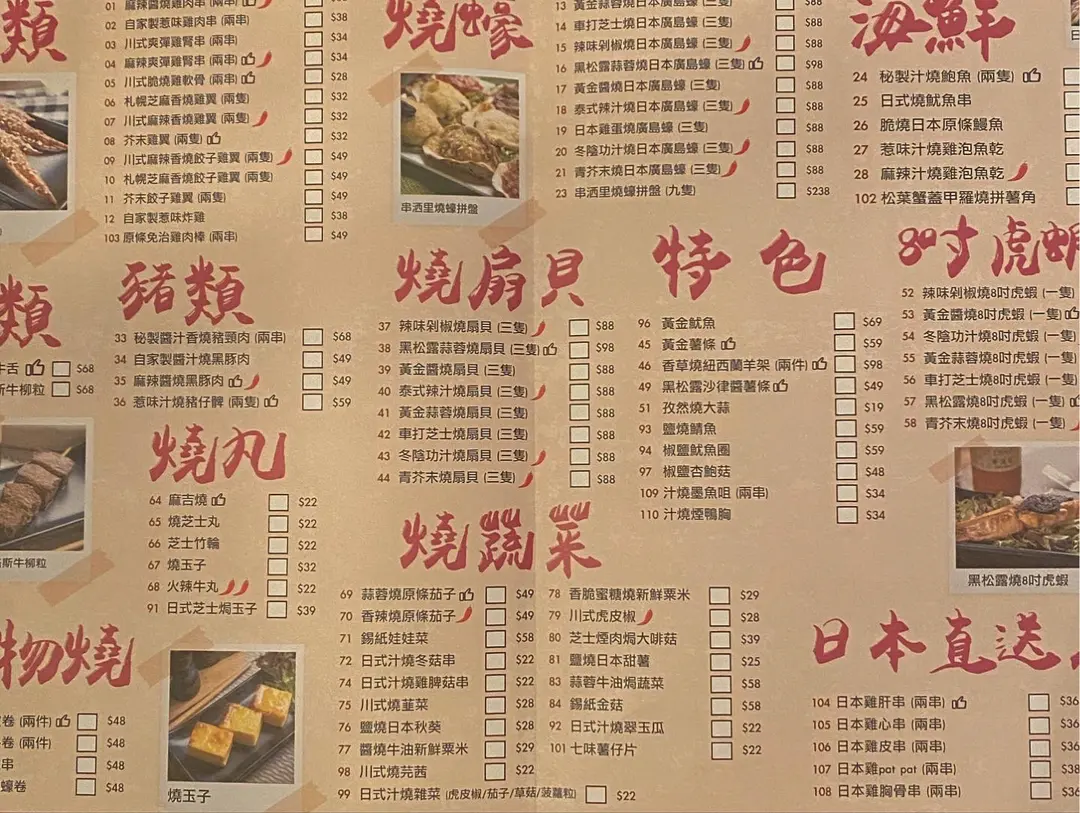 類
01 麻辣醬燒雞肉串 (兩串)
02 自家製惹味雞肉串 (兩串) $38
03 川式爽彈雞腎串 (兩串) $34
04 麻辣爽彈雞腎串 (兩串) $34
05 川式脆燒雞軟骨 (兩串) $28
06 札幌芝麻香燒雞翼 (兩隻) $32
07 川式麻辣香燒雞翼 (兩隻) $32
08 芥末雞翼 (兩隻) $32
09 川式麻辣香燒餃子雞翼 (兩隻) $49
10 札幌芝麻香燒餃子雞翼 (兩隻) $49
11 芥末餃子雞翼 (兩隻) $49
12 自家製惹味炸雞 $38
103 原條免治雞肉棒 (兩串) $49
燒蠔
串洒里燒蠔拼盤
13 黃金蒜蓉燒日本廣島蠔 (三隻) $88
14 車打芝士燒日本廣島蠔 (三隻) $88
15 辣味剁椒燒日本廣島蠔 (三隻) $88
16 黑松露蒜蓉燒日本廣島蠔 (三隻) $98
17 黃金醬燒日本廣島蠔 (三隻) $88
18 泰式辣汁燒日本廣島蠔 (三隻) $88
19 日本雞蛋燒廣島蠔 (三隻) $88
20 冬陰功汁燒日本廣島蠔 (三隻) $88
21 青芥末燒日本廣島蠔 (三隻) $88
23 串洒里燒蠔拼盤 (九隻) $238
海鮮
24 秘製汁燒鮑魚 (兩隻)
25 日式燒魷魚串
26 脆燒日本原條鰻魚
27 惹味汁燒雞泡魚乾
28 麻辣汁燒雞泡魚乾
102 松葉蟹蓋甲羅燒拼薯角
類
牛舌 $68
斯牛柳粒 $68
斯牛柳粒
豬類
33 秘製醬汁香燒豬頸肉 (兩串) $68
34 自家製醬汁燒黑豚肉 $49
35 麻辣醬燒黑豚肉 $49
36 惹味汁燒豬仔髀 (兩隻) $59
燒丸
64 麻吉燒 $22
65 燒芝士丸 $22
66 芝士竹輪 $22
67 燒玉子 $32
68 火辣牛丸 $22
91 日式芝士焗玉子 $39
燒扇貝
37 辣味剁椒燒扇貝 (三隻) $88
38 黑松露蒜蓉燒扇貝 (三隻) $98
39 黃金醬燒扇貝 (三隻) $88
40 泰式辣汁燒扇貝 (三隻) $88
41 黃金蒜蓉燒扇貝 (三隻) $88
42 車打芝士燒扇貝 (三隻) $88
43 冬陰功汁燒扇貝 (三隻) $88
44 青芥末燒扇貝 (三隻) $88
特色
96 黃金魷魚 $69
45 黃金薯條 $59
46 香草燒紐西蘭羊架 (兩件) $98
49 黑松露沙律醬薯條 $49
51 孜然燒大蒜 $19
93 鹽燒鯖魚 $59
94 椒鹽魷魚圈 $59
97 椒鹽杏鮑菇 $48
109 汁燒墨魚咀 (兩串) $34
110 汁燒煙鴨胸 $34
8吋虎蝦
52 辣味剁椒燒8吋虎蝦 (一隻)
53 黃金醬燒8吋虎蝦 (一隻)
54 冬陰功汁燒8吋虎蝦 (一隻)
55 黃金蒜蓉燒8吋虎蝦 (一隻)
56 車打芝士燒8吋虎蝦 (一隻)
57 黑松露燒8吋虎蝦 (一隻)
58 青芥末燒8吋虎蝦 (一隻)
黑松露燒8吋虎蝦
物燒
卷 (兩件) $48
卷 (兩件) $48
串 $48
蠔卷 $48
燒玉子
燒蔬菜
69 蒜蓉燒原條茄子 $49
70 香辣燒原條茄子 $49
71 錫紙娃娃菜 $58
72 日式汁燒冬菇串 $22
74 日式汁燒雞脾菇串 $22
75 川式燒韮菜 $28
76 鹽燒日本秋葵 $28
77 醬燒牛油新鮮粟米 $29
98 川式燒芫茜 $22
99 日式汁燒雜菜 (虎皮椒/茄子/草菇/菠蘿粒) $22
78 香脆蜜糖燒新鮮粟米 $29
79 川式虎皮椒 $28
80 芝士煙肉焗大啡菇 $39
81 鹽燒日本甜薯 $25
83 蒜蓉牛油焗蔬菜 $58
84 錫紙金菇 $58
92 日式汁燒翠玉瓜 $22
101 七味薯仔片 $22
日本直送
104 日本雞肝串 (兩串) $36
105 日本雞心串 (兩串) $36
106 日本雞皮串 (兩串) $36
107 日本雞pat pat (兩串) $38
108 日本雞胸骨串 (兩串) $36